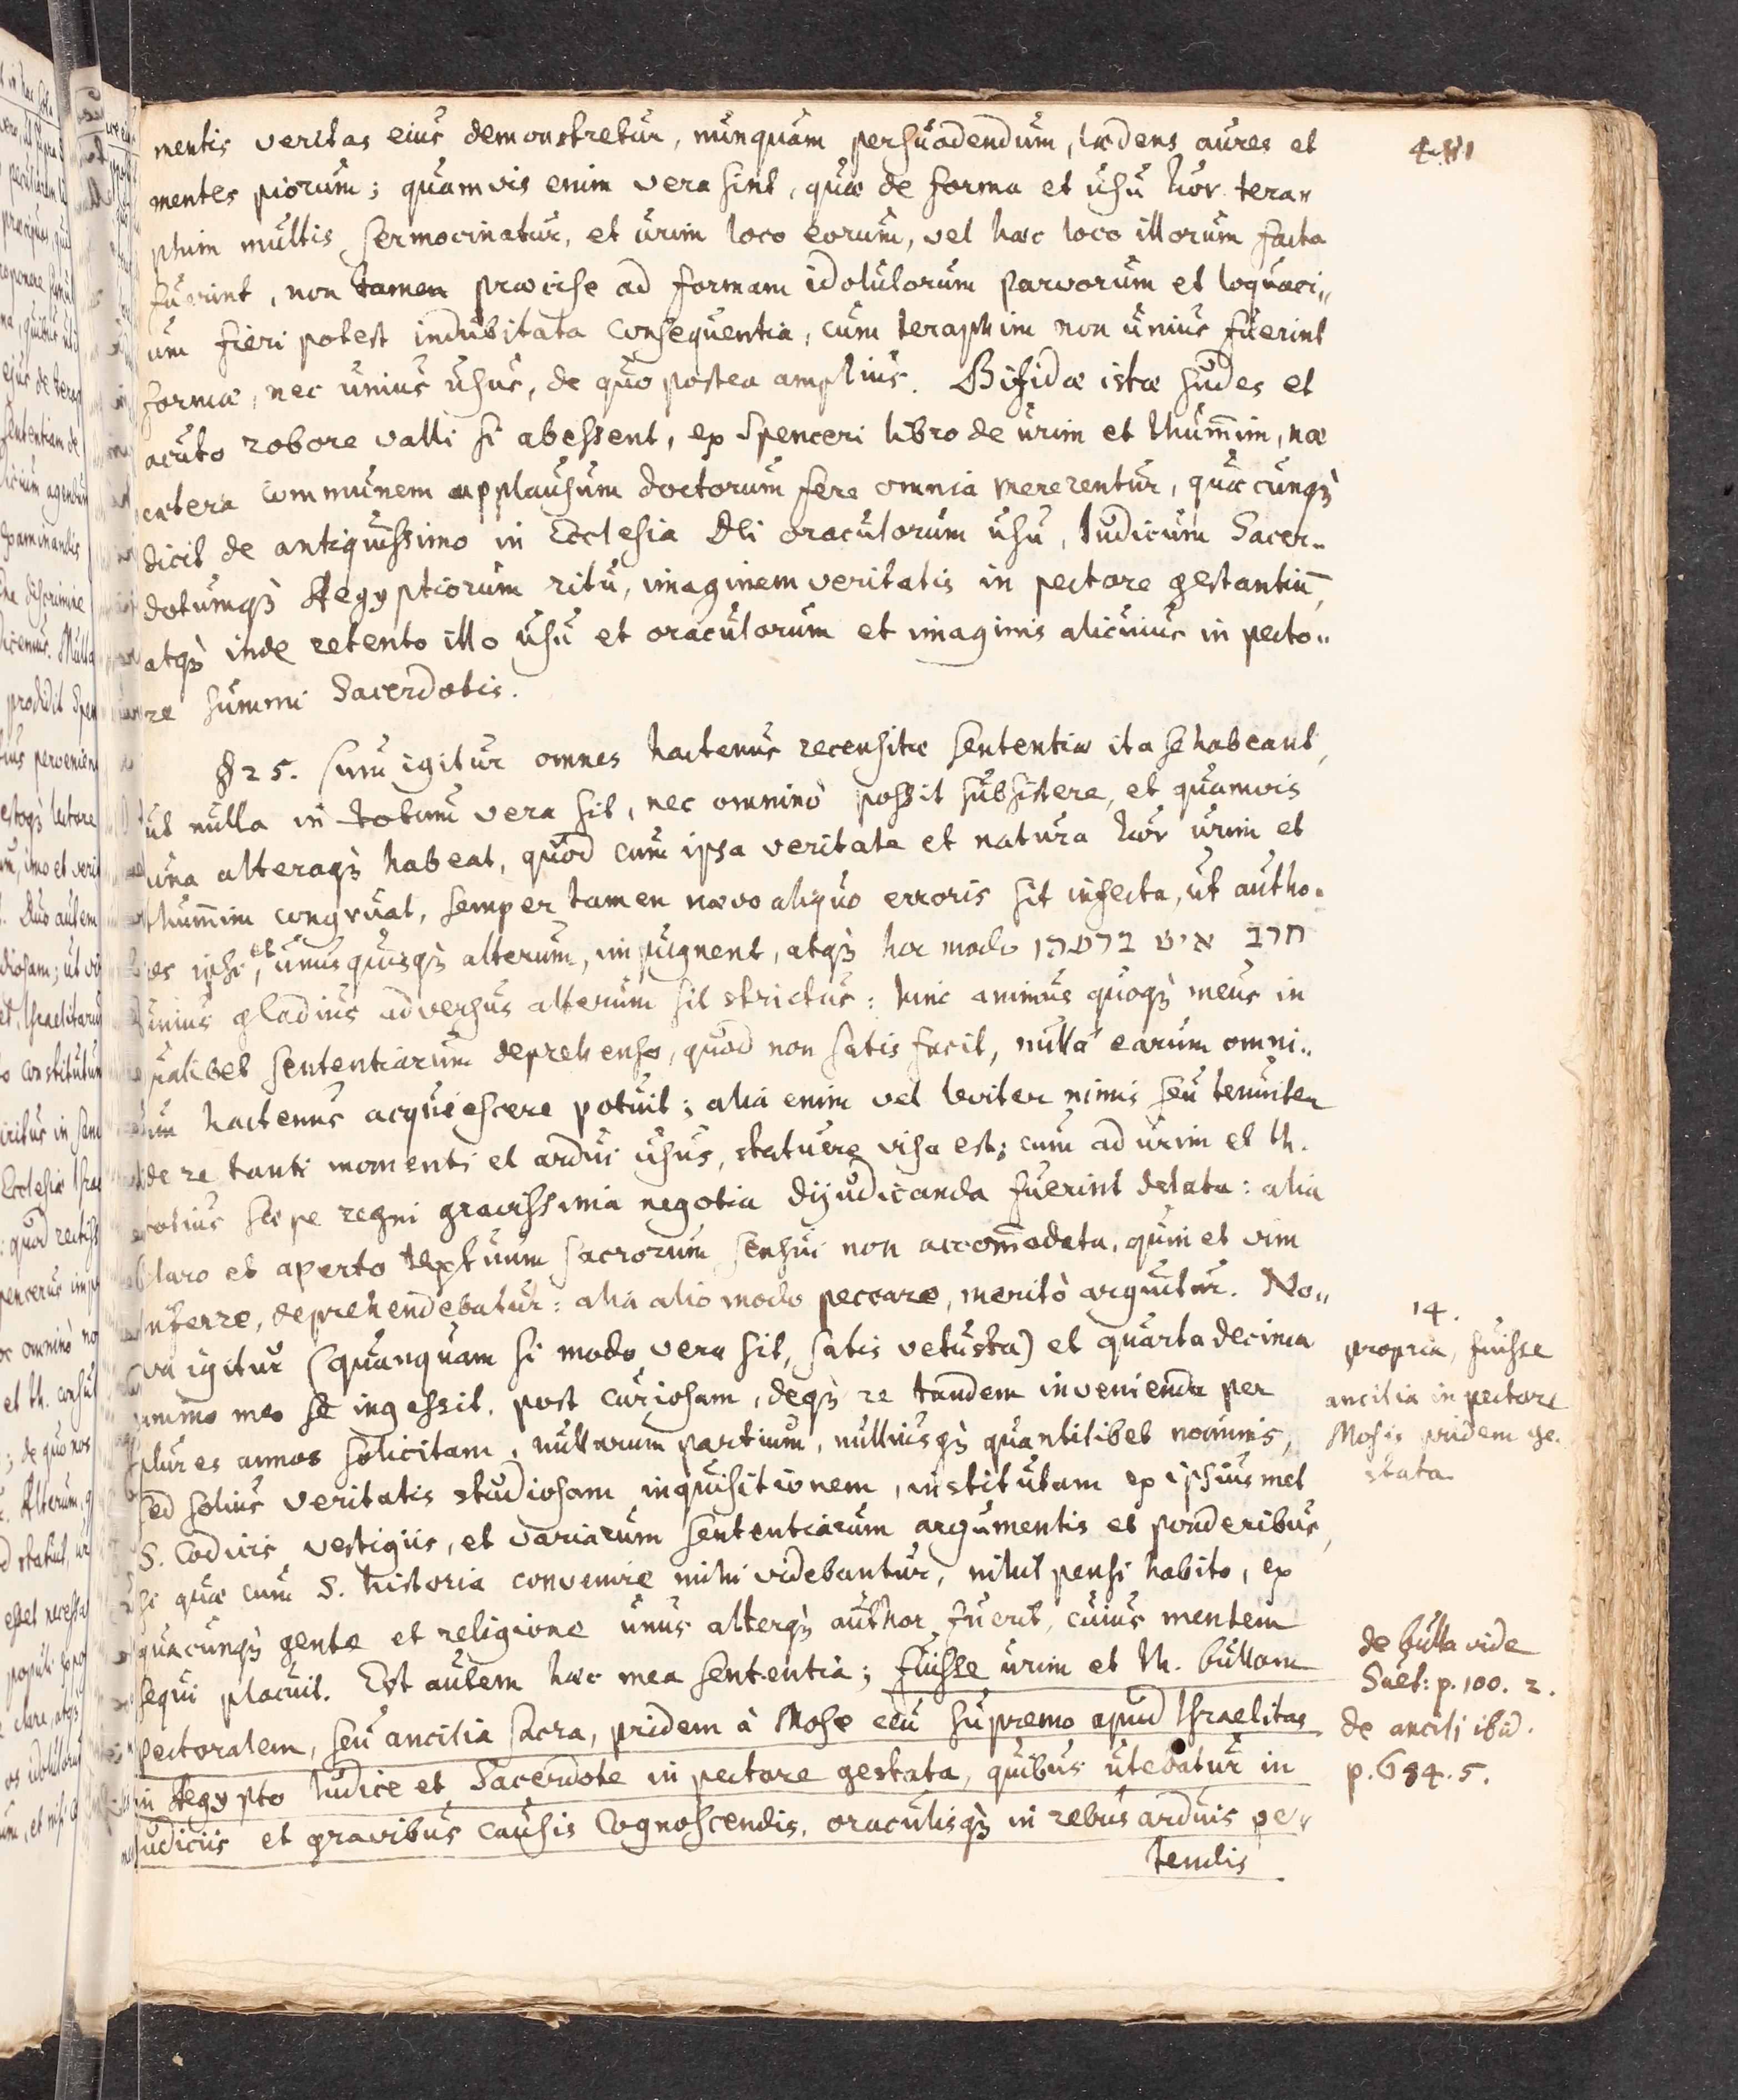 481
mentis veritas eius demonstretur, nunquam persuadendum, lædens aures et
mentes piorum; quamvis enim vera sint, quæ de forma et usu hor tera„
phim multis sermocinatur, et urim loco eorum, vel hæc loco illorum facta
fuerint, non tamen præcise ad formam idolulorum parvorum et loquaci„
um fieri potest indubitata consequentia, cum teraphim non unius fuerint
formæ, nec unius usus, de quo postea amplius. Bifidæ istæ sudes et
acuto robore valli si abessent, ex Spenceri libro de urim et thum̄im, næ
cætera communem applausum doctorum fere omnia mererentur, quæcunqꝫ
dicit de antiquissimo in Ecclesia Dli oraculorum usu, Iudicum Sacer„
dotumqꝫ Aegyptiorum ritu, imaginem veritatis in pectore gestantiū,
atqꝫ inde retento illo usu et oraculorum et imaginis alicuius in pecto„
re summi Sacerdotis.
§ 25. Cum igitur omnes hactenus recensitæ sententiæ ita se habeant,
ut nulla in totum vera sit, nec omninò possit subsistere, et quamvis
una alteraqꝫ habeat, quod cum ipsa veritate et natura hor urim et
thum̄im congruat, semper tamen nævo aliquo erroris sit infecta, ut autho„
res ipsi, et unusquisqꝫ alterum, impugnent, atqꝫ hoc modo חרב איש ברעהו
unius gladius adversus alterum sit strictus: hinc animus quoqꝫ meus in
qualibet sententiarum deprehenso, quod non satis facit, nulla earum omni„
um hactenus acquiescere potuit; alia enim vel leviter nimis seu tenuiter
de re tanti momenti et ardui usus, statuere visa est; cum ad urim et th.
totius sæpe regni gravissima negotia dijudicanda fuerint delata: alia
claro et aperto textuum sacrorum sensui non accom̄odata, quin et vim
inferre, deprehendebatur: alia alio modo peccare, meritò arguitur. No„
va igitur (quanquam si modo vera sit, satis vetusta) et quarta decima
animo meo se ingessit, post curiosam, deqꝫ re tandem invenienda per
plures annos solicitam, nullarum partium, nulliusqꝫ quantilibet nominis,
sed solius veritatis studiosam inquisitionem, institutam ex ipsiusmet
S. Codicis vestigiis, et variarum sententiarum argumentis et ponderibus,
si quæ cum S. historia convenire mihi videbantur, nihil pensi habito, ex
quacunqꝫ gente et religione unus alterqꝫ author fuerit, cuius mentem
sequi placuit. Est autem hæc mea sententia; fuisse urim et th. bullam
pectoralem, seu ancilia sacra, pridem à Mose ceu supremo apud Israelitas
in Aegypto Iudice et Sacerdote in pectore gestata, quibus utebatur in
iudiciis et gravibus causis cognoscendis, oraculisqꝫ in rebus arduis pe„
tendis
14.
propria, fuisse
ancilia in pectore
Mosis pridem ge„
stata
de bulla vide
Suet: p. 100. 2.
de ancili ibid.
p. 684. 5.